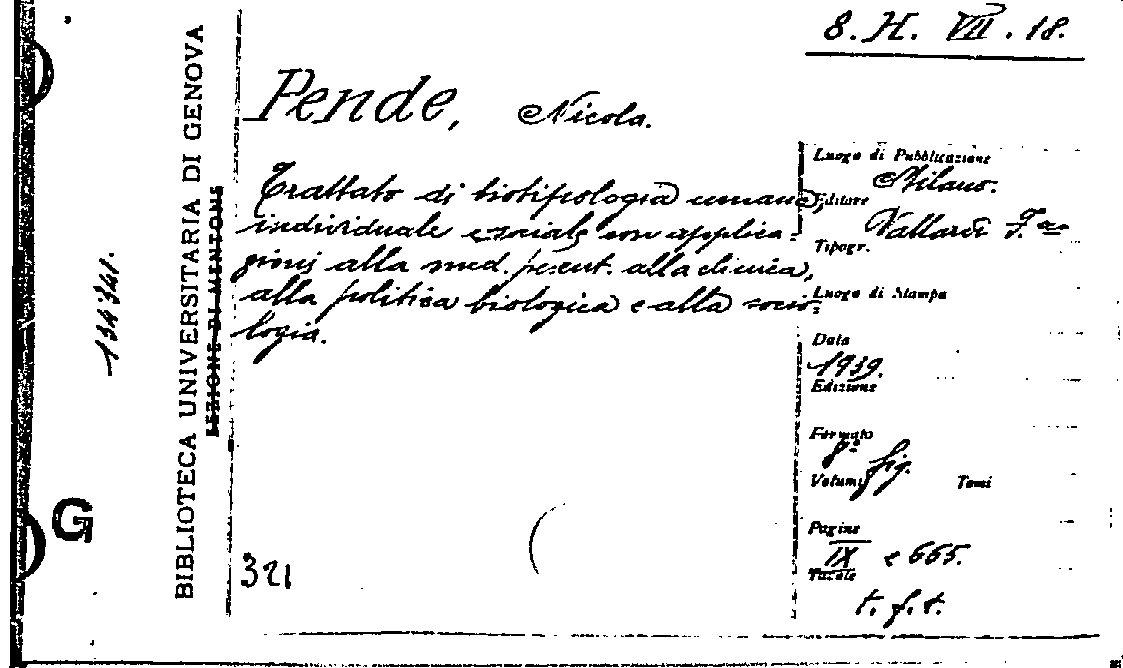 8. H. VII. 18.
Pende, Nicola.
Trattato di biotipologia umana,
individuale e sociale con applica-
zioni alla med. prevent. alla clinica,
alla politica biologica e alla socio-
logia.
Luogo di Pubblicazione
Milano.
Editore
Vallardi F.
Tipogr.
Luogo di Stampa
Data
1939.
Edizione
Formato
8° fig.
Volumi Tomi
Pagine
IX e 665.
Tavole
t. f. t.
BIBLIOTECA UNIVERSITARIA DI GENOVA
SEZIONE DI MENTONE
134341.
G
321